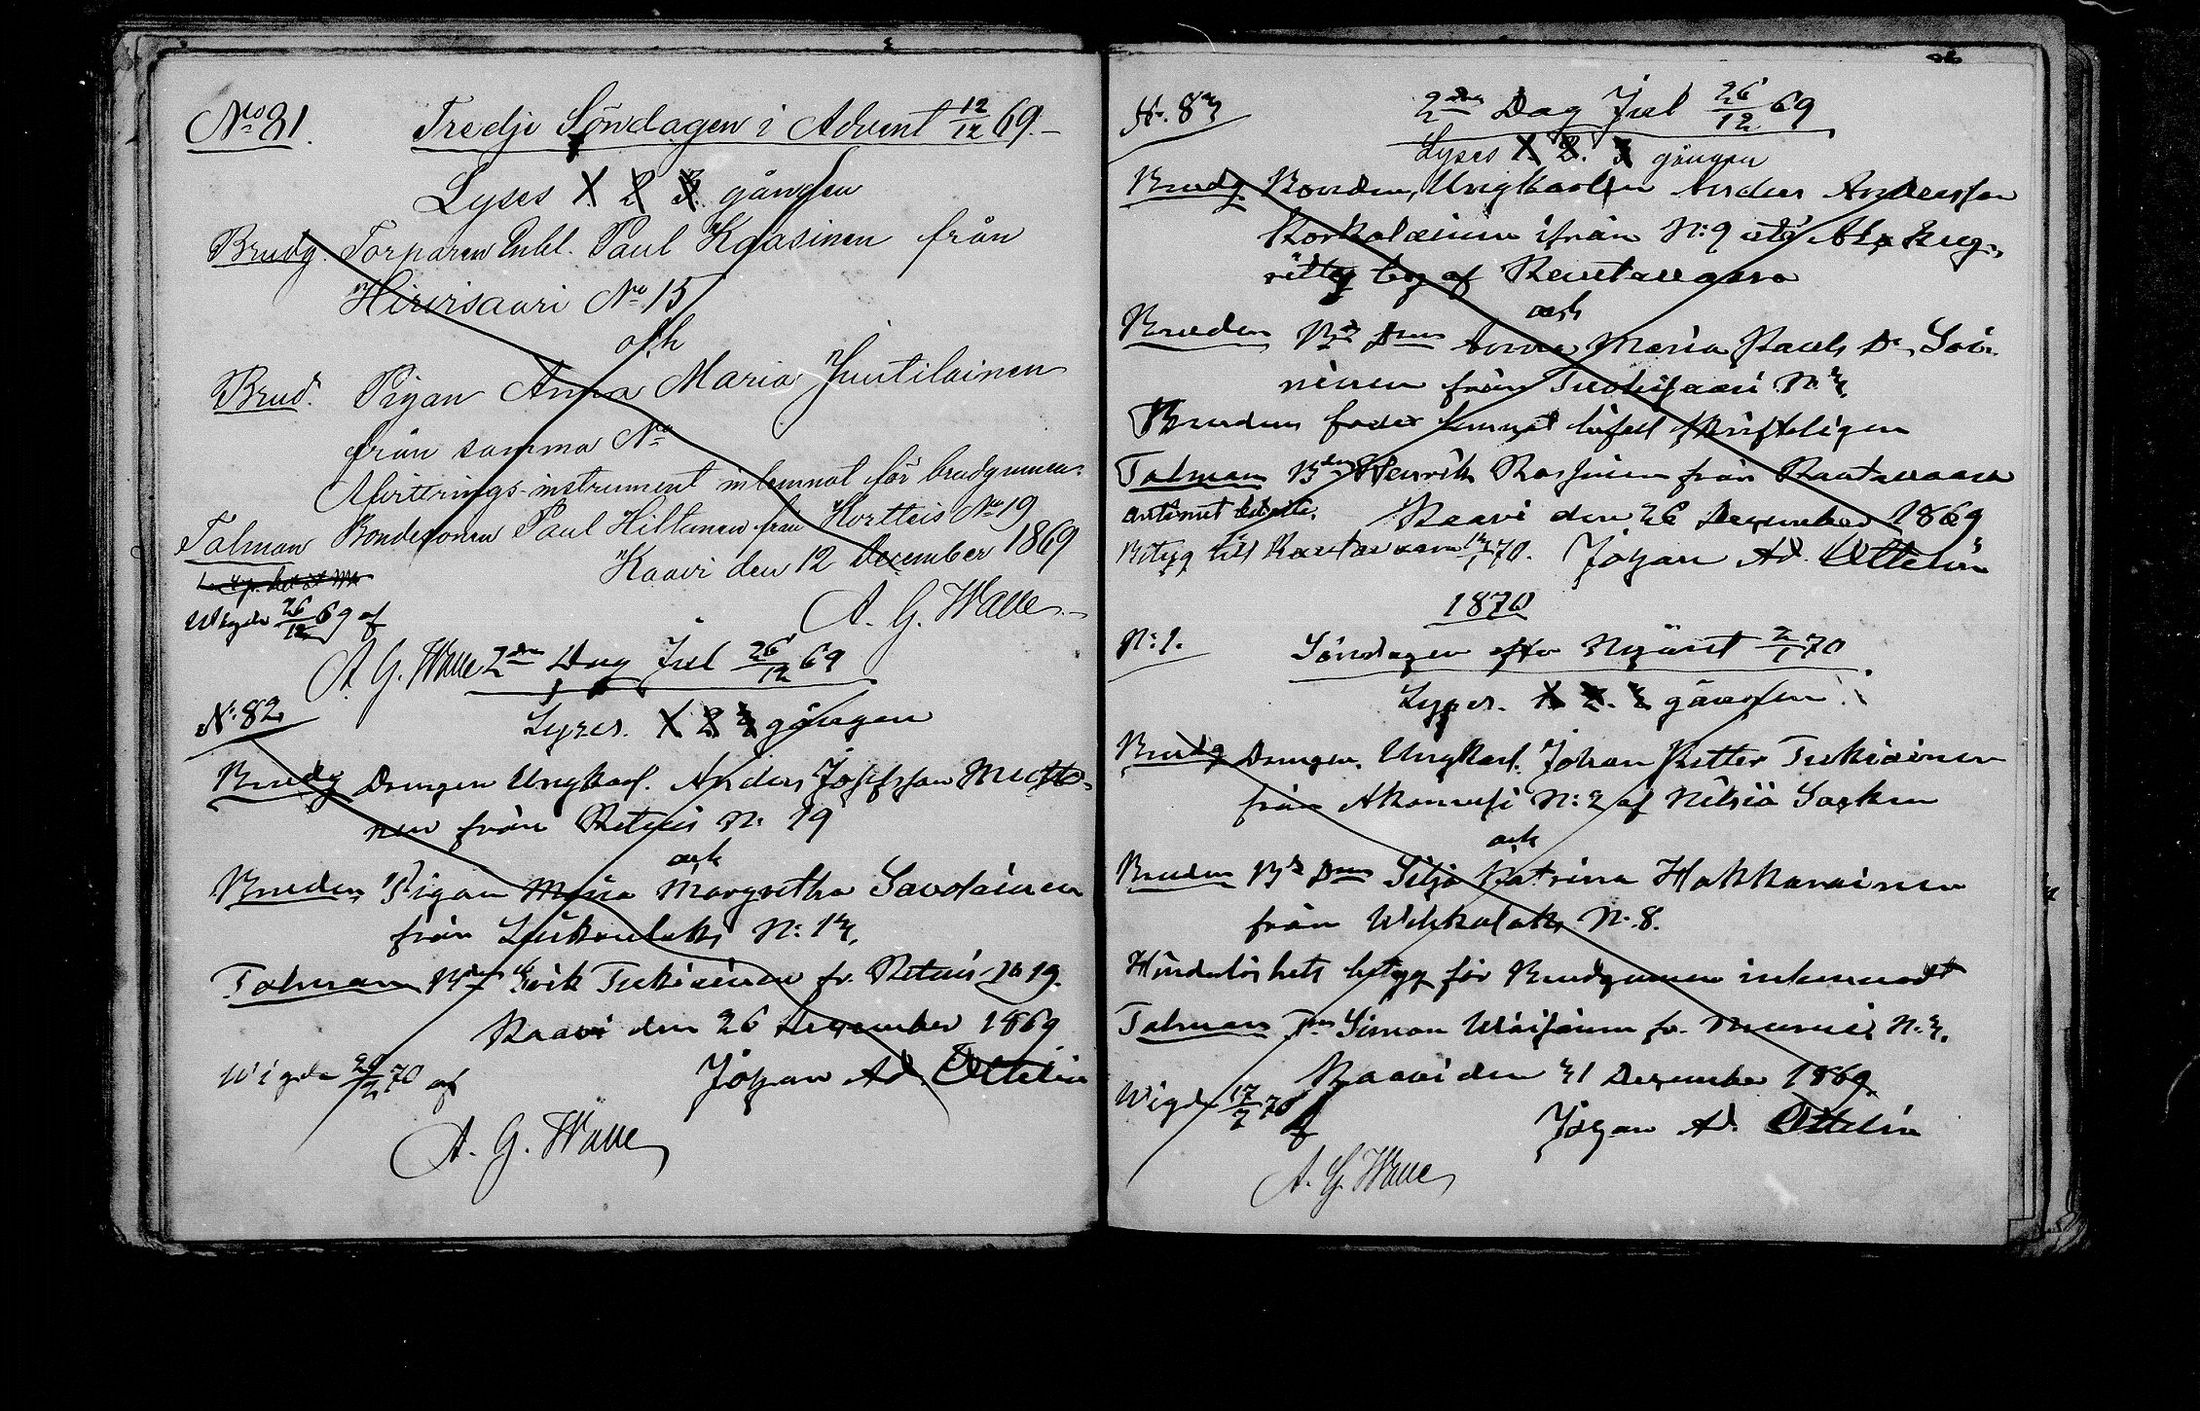 No 81.
Tredje Söndagen i Advent 12/12 69.
Lyses 1. 2 3. gången
Brudg. Torparen Enkl. Paul Kaasinen från
Hirvisaari No 15
och
Brud. Pigan Anna Maria Juutilainen
från samma No
Afvittrings-instrument inlemnat för brudgummen.
Talman Bondesonen Paul Hiltunen från Kortteis No 19
Kaavi den 12 December 1869
A. G. Walle
Wigde 26/12 69 af
A. G. Walle
2dra Dag Jul 26/12 69
N: 82
Lyses. 1 2 3 gången
Brudg Drengen Ungkarl. Anders Josefsson Musto-
nen från Retuis N: 19
och
Bruden Pigan Maria Margretha Savolainen
från Luikonlaks N: 13.
Talman Erik Tukiainen fr. Retuis N 19.
Kaavi den 26 December 1869
Johan Ad. Ottelin
Wigde 20/2 70 af
A. G. Walle
N. 83
2dra Dag Jul 26/12 69
Lyses 1. 2. 3 gången
Brudg. Bonden, Ungkarlen Anders Andersson
Korkalainen ifrån N: 9
af Rautavaara
och
Bruden Anna Maria Pauls Dr
från N: 3.
Brudens fader skriftligen
Talman Henrik från Rautavaara
Kaavi den 26 December 1869
Betyg till Rautavaara 13/1 70. Johan Ad. Ottelin
1870
N: 1.
Söndagen efter Nyåret 2/1 70
Lyses. 1. 2. 3 gången
Brudg Drengen. Ungkarl. Johan Petter Tukiainen
från Akonvesi N: 2 af Nilsiä Socken
och
Bruden Bd Dnn Silja Katrina Hakkarainen
från Wehkalaks N. 8.
Hinderlöshets betyg för Brudgumen inlemnadt
Talman Simon Wäisänen fr. N: 3.
Kaavi den 31 December 1869
Wigde 17/2 70 af
Johan Ad. Ottelin
A. G. Walle